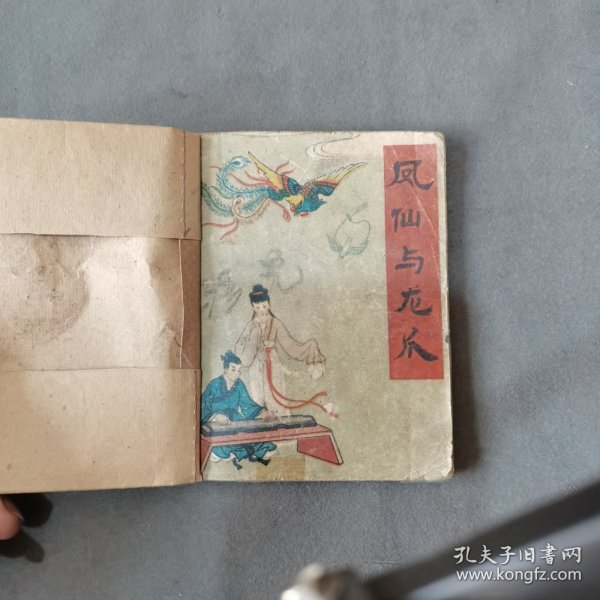 凤仙与龙爪
孔夫子旧书网
www.kongfz.com